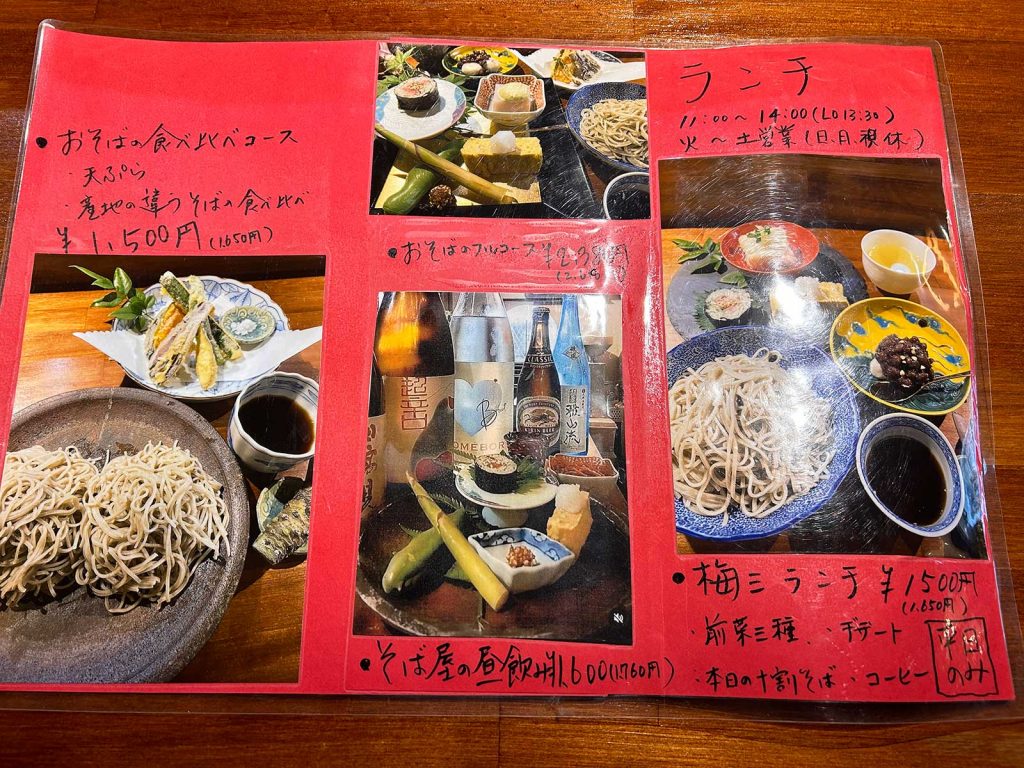 ・おそばの食べ比べコース
・天ぷら
・産地の違うそばの食べ比べ
¥1,500円(1,650円)
・おそばのフルコース
・そば屋の昼飲み 1,600(1,760円)
KIRIN BEER
CLASSIC
ランチ
11:00～14:00(LO 13:30)
火～土営業(日.月.祝休)
・梅三ランチ ¥1500円
(1,650円)
・前菜三種 ・デザート
・本日の十割そば ・コーヒー
平日
のみ